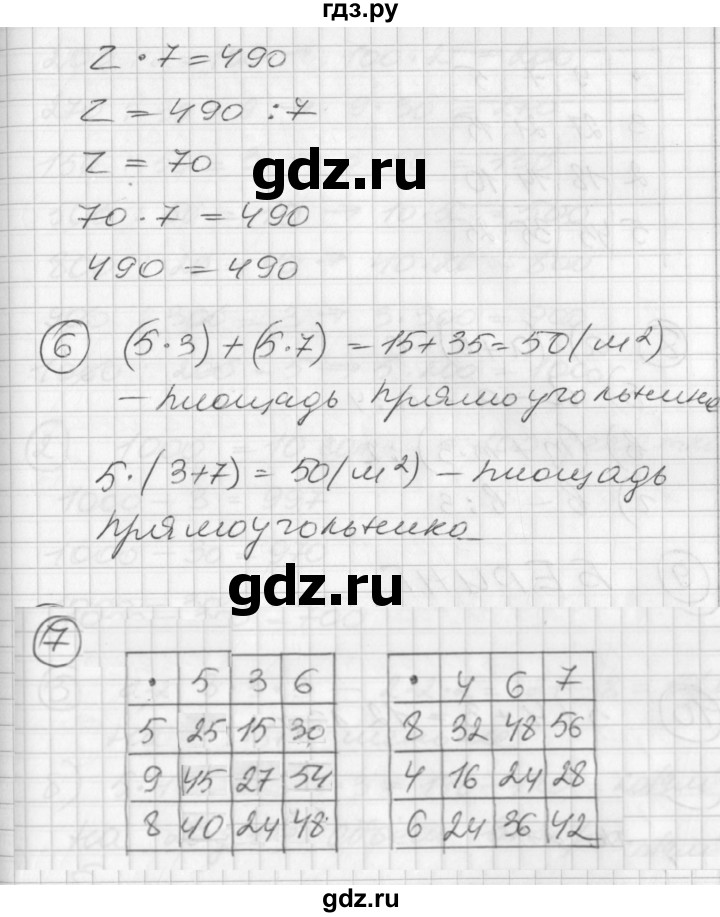 гдз.ру
z · 7 = 490
z = 490 : 7
z = 70
gdz.ru
70 · 7 = 490
490 = 490
6 (5·3)+(5·7) = 15+35=50(м²)
– площадь прямоугольника
5·(3+7) = 50(м²) – площадь
прямоугольника
gdz.ru
7
· 5 3 6
5 25 15 30
9 45 27 54
8 40 24 48
· 4 6 7
8 32 48 56
4 16 24 28
6 24 36 42
gdz.ru